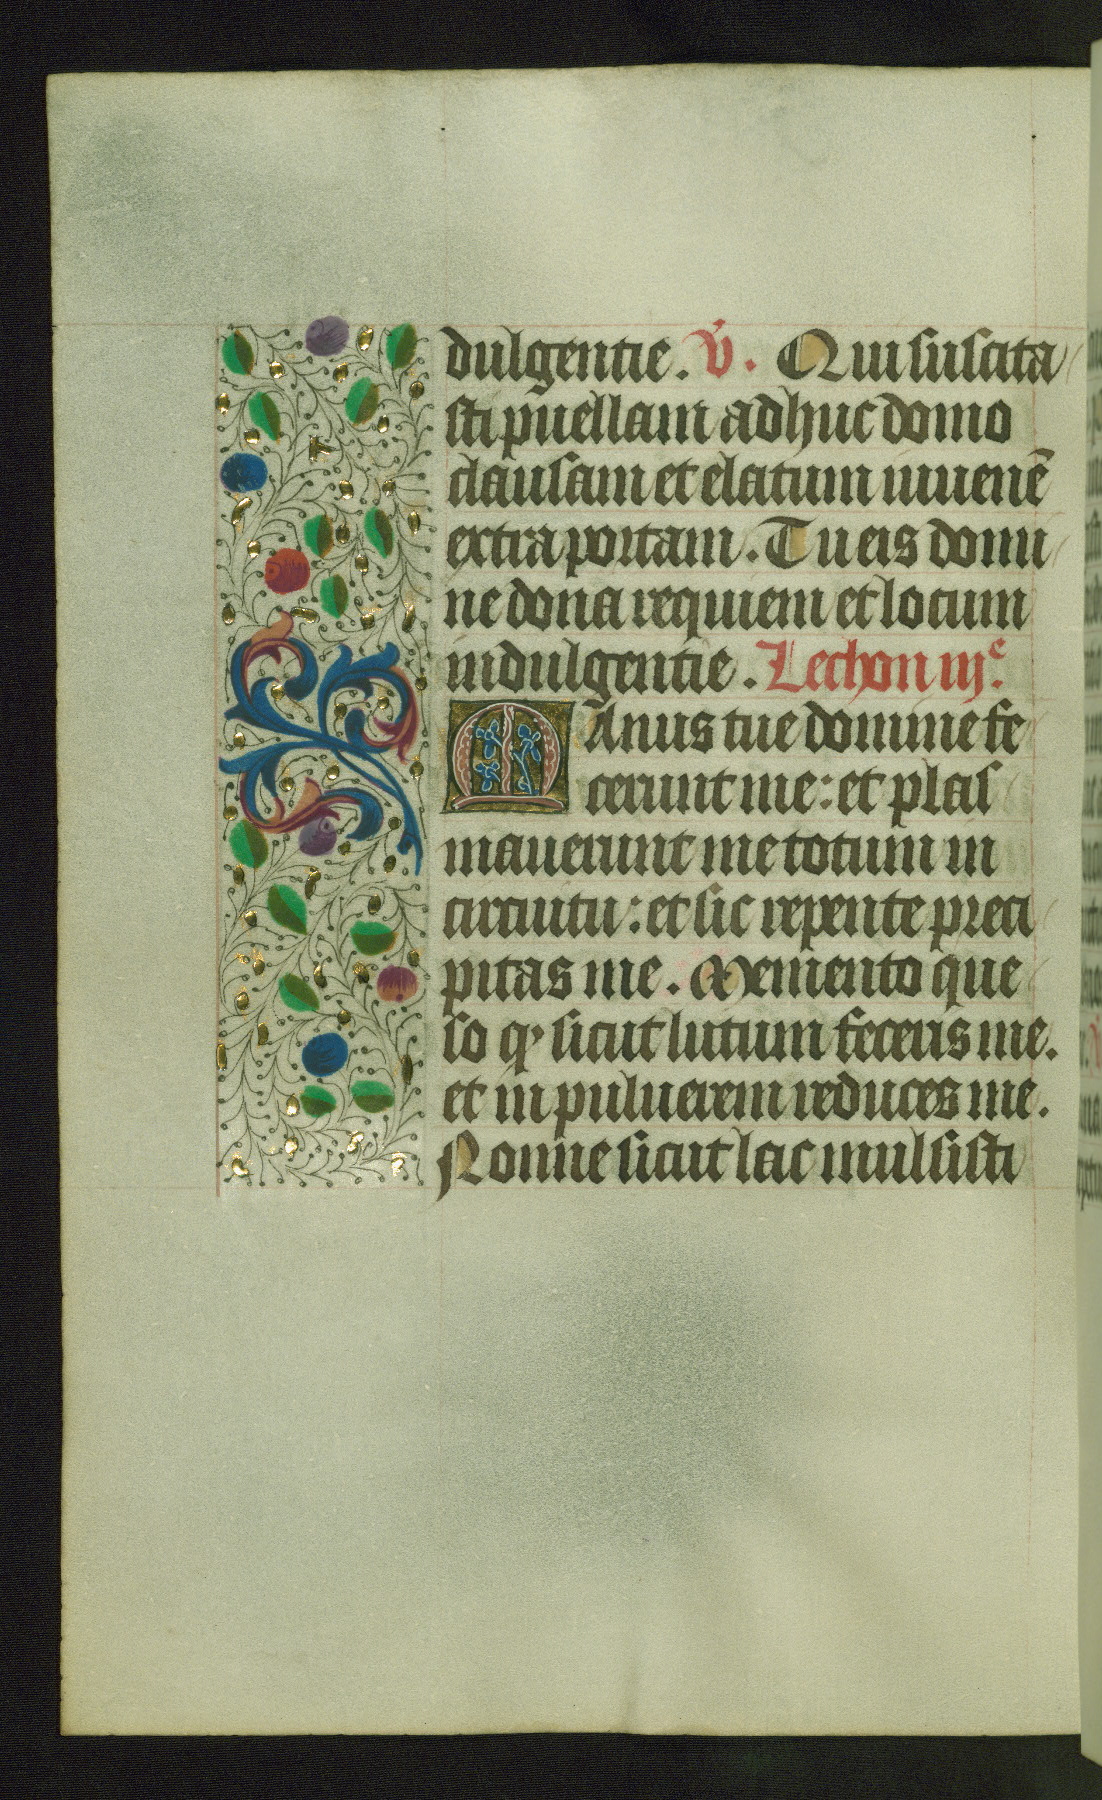 dulgentie. v̄. Qui suscita
sti puellam ad huc domo
clausam et elatum iuuenē
extra portam. Tu eis domi
ne dona requiem et locum
indulgentie. Lechon iijᵉ.
Manus tue domine fe
cerunt me: et plas
mauerunt me totum in
circuitu: et sic repente preci
pitas me. Memento que
so qꝫ sicut lutum feceris me.
et in puluerem reduces me.
Nonne sicut lac mulsisti